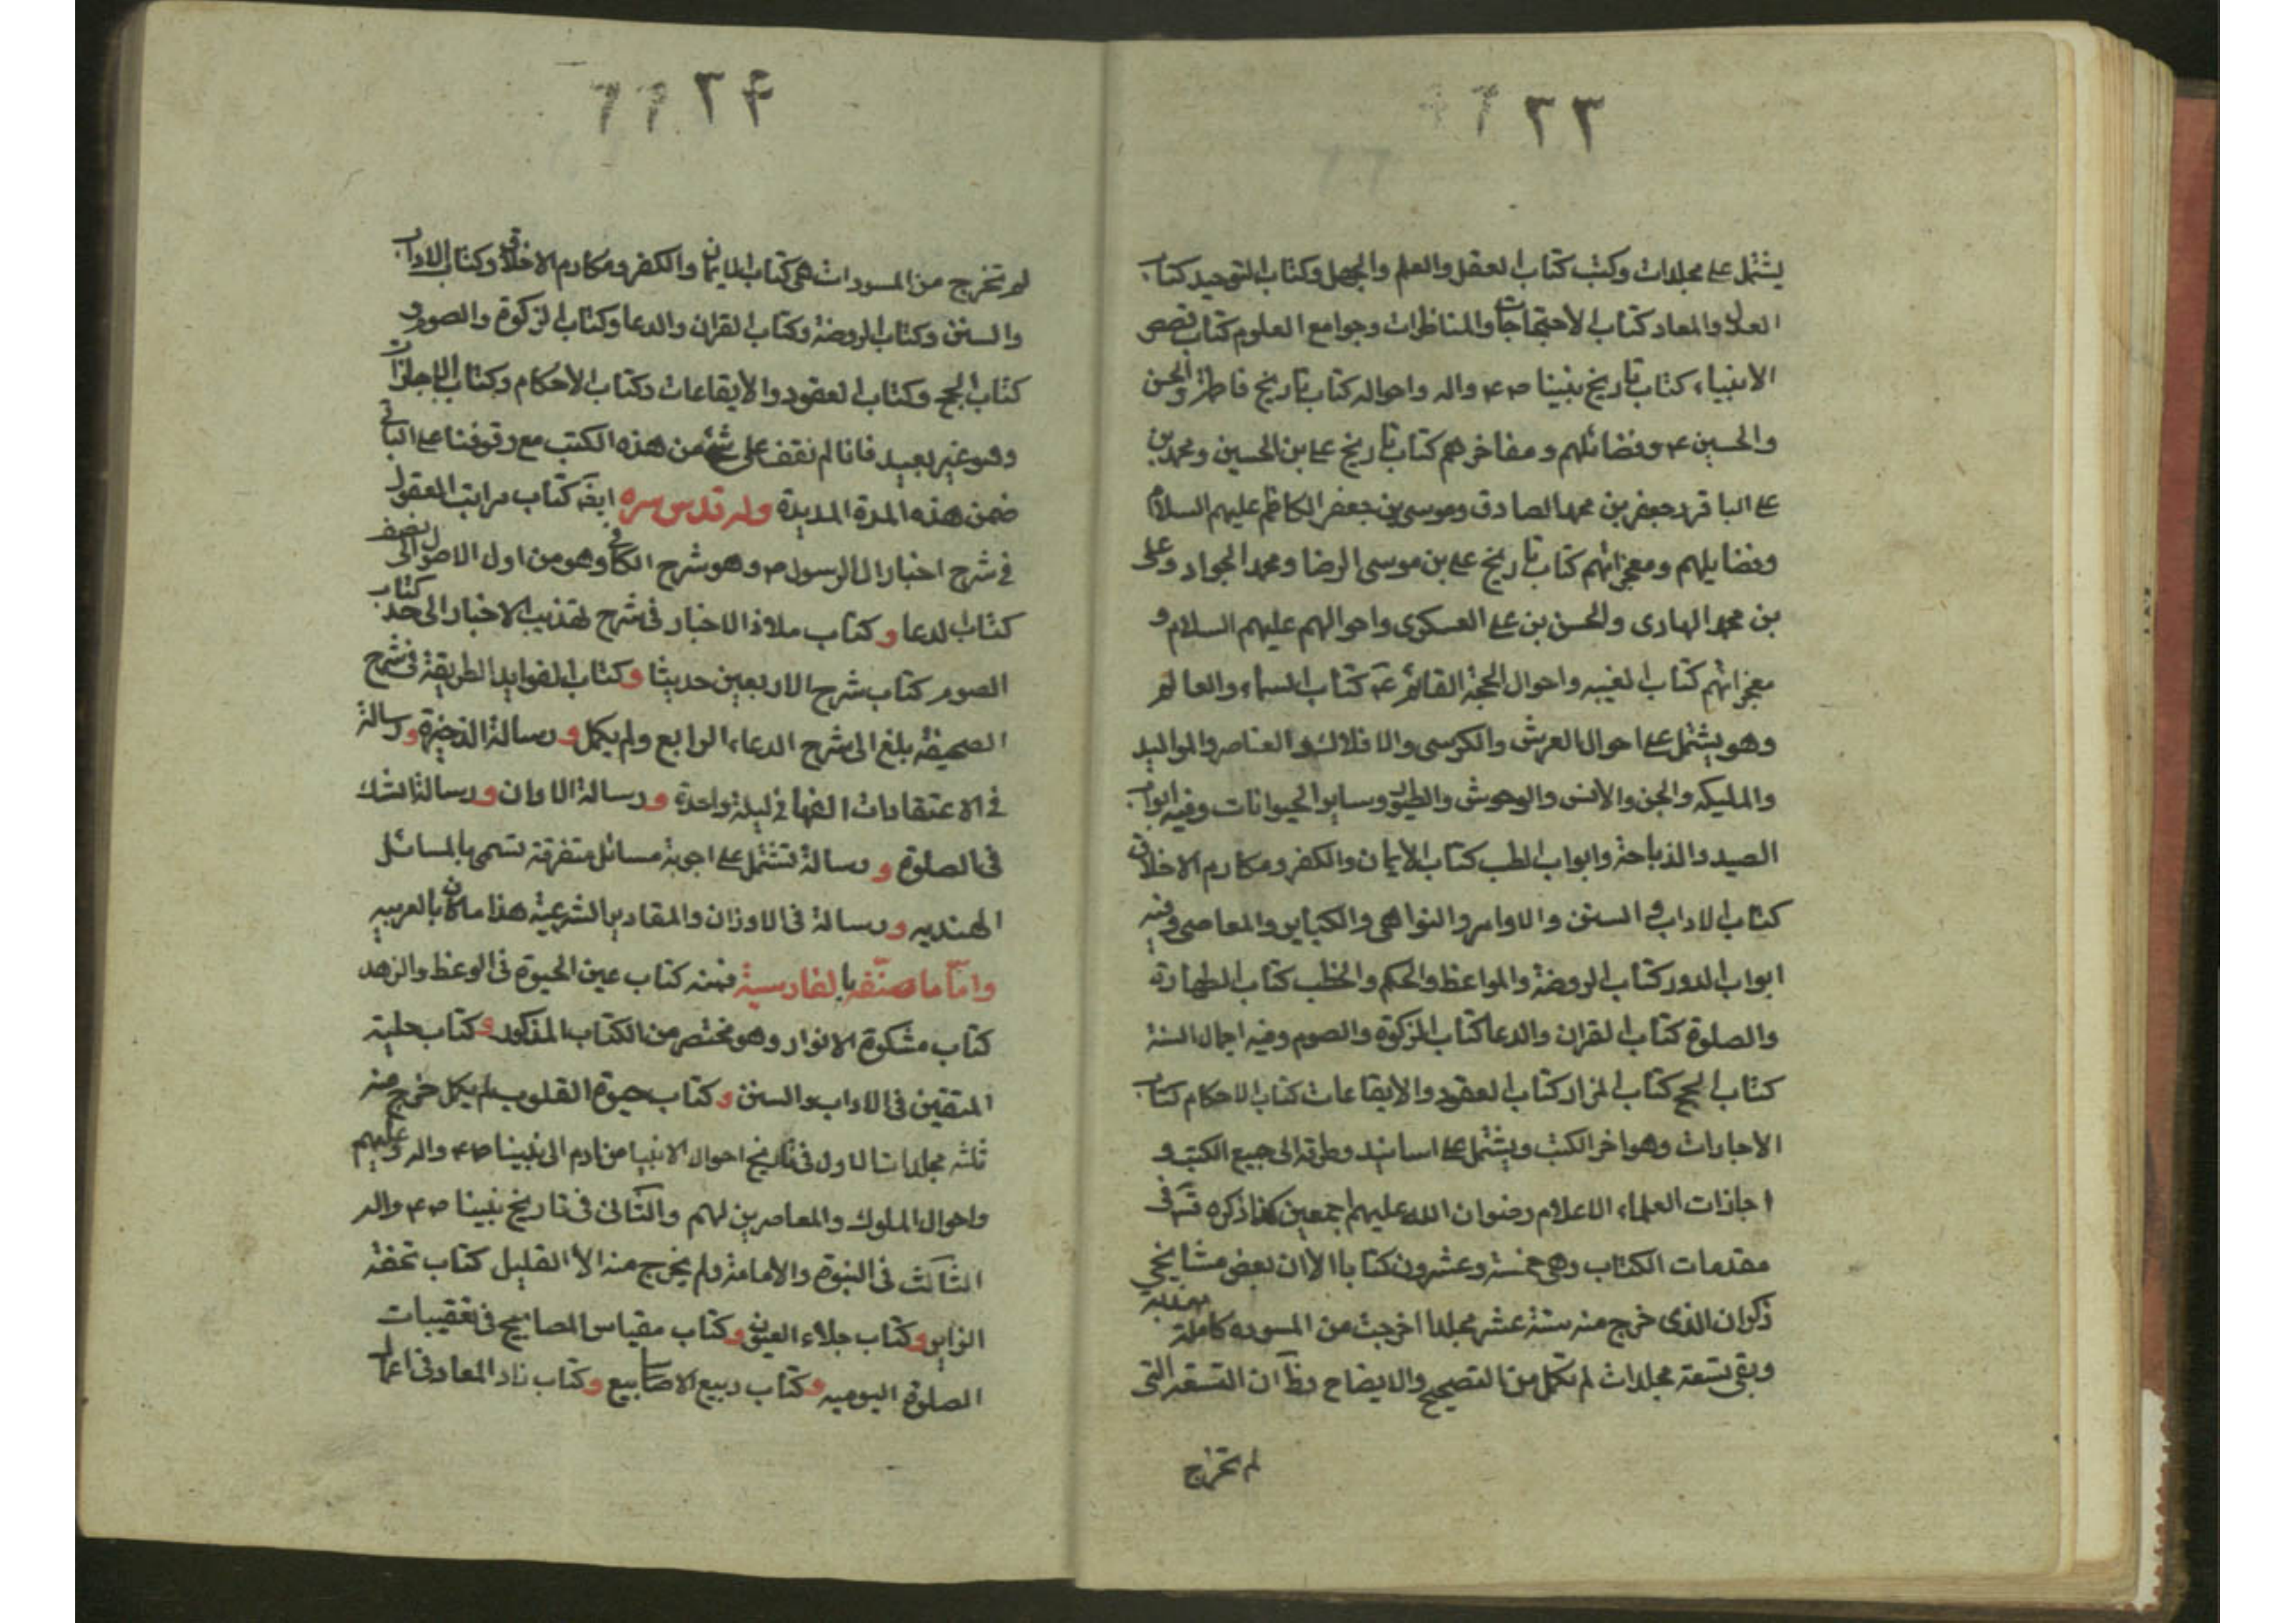 ٢٣
يشتمل على مجلدات وكتب كتاب العقل والعلم والجهل وكتاب التوحيد كتاب
العدل والمعاد كتاب الاحتجاجات والمناظرات وجوامع العلوم كتاب قصص
الانبياء كتاب تاريخ نبينا ص ع واله واحواله كتاب تاريخ فاطمة والحسن
والحسين ع وفضائلهم ومفاخرهم كتاب تاريخ على بن الحسين ومحمد بن
على الباقر وجعفر بن محمد الصادق وموسى بن جعفر الكاظم عليهم السلام
وفضايلهم ومعجزاتهم كتاب تاريخ على بن موسى الرضا ومحمد الجواد وعلى
بن محمد الهادى والحسن بن على العسكرى واحوالهم عليهم السلام و
معجزاتهم كتاب الغيبه واحوال الحجة القائم ع كتاب السماء والعالم
وهو يشتمل على احوال العرش والكرسى والافلاك والعناصر والمواليد
والمليكه والجن والانس والوحوش والطيور وساير الحيوانات وفيه ابواب
الصيد والذباحة وابواب الطب كتاب الايمان والكفر ومكارم الاخلاق
كتاب الاداب و السنن والاوامر والنواهى والكباير والمعاصى وفيه
ابواب الدور كتاب الروضة والمواعظ والحكم والخطب كتاب الطهارة
والصلوة كتاب القران والدعا كتاب الزكوة والصوم وفيه اعمال السنة
كتاب الحج كتاب المزار كتاب العقود والايقاعات كتاب الاحكام كتاب
الاجارات وهو اخر الكتب ويشتمل على اسانيده وطرقه الى جميع الكتب و
اجازات العلماء الاعلام رضوان الله عليهم اجمعين كذا ذكره قده فى
مقدمات الكتاب وهى خمسة وعشرون كتابا الا ان بعض مشايخى
ذكر ان الذى خرج منه ستة عشر مجلدا اخرجت من المسوده كاملة مهذبه
وبقى تسعة مجلدات لم تكمل من التصحيح والايضاح وظ ان التسعة التى
لم تخرج
٢۴
لم تخرج من المسودات هى كتاب الايمان والكفر ومكارم الاخلاق وكتاب الاداب
والسنن وكتاب الروضة وكتاب القران والدعا وكتاب الزكوة والصوم و
كتاب الحج وكتاب العقود والايقاعات وكتاب الاحكام وكتاب الاجازات
وهو غير بعيد فانا لم نقف على شئ من هذه الكتب مع وقوفنا على الباقى
ضمن هذه المدة المديدة وله قدس سره ايضه كتاب مرات العقول
فى شرح اخبار ال الرسول ص وهو شرح الكافى وهو من اول الاصول الى نصف
كتاب الدعا و كتاب ملاذ الاخبار فى شرح تهذيب الاخبار الى حد كتاب
الصوم كتاب شرح الاربعين حديثا و كتاب الفوايد الطريفة فى شرح
الصحيفة بلغ الى شرح الدعاء الرابع ولم يكمل و رسالة الذخيرة و رسالة
فى الاعتقادات الفها فى ليلة واحدة و رسالة الاوان و رسالة الشك
فى الصلوة و رسالة تشتمل على اجوبة مسائل متفرقة تسمى بالمسائل
الهنديه و رسالة فى الاوزان والمقادير الشرعية هذا ما كان بالعربيه
وامّا ما صنّفه بالفارسية فمنه كتاب عين الحيوة فى الوعظ والزهد
كتاب مشكوة الانوار وهو مختصر من الكتاب المذكور و كتاب حلية
المتقين فى الاداب والسنن و كتاب حيوة القلوب لم يكمل خرج منه
ثلثه مجلدات الاول فى تاريخ احوال الانبيا من ادم الى نبينا ص ع واله وعليهم
واحوال الملوك والمعاصرين لهم والثانى فى تاريخ نبينا ص ع واله
الثالث فى النبوة والامامة ولم يخرج منه الا القليل كتاب تحفة
الزاير و كتاب جلاء العيون و كتاب مقباس المصابيح فى تعقيبات
الصلوة اليوميه و كتاب ربيع الاصابيع و كتاب زاد المعاد فى اعمال